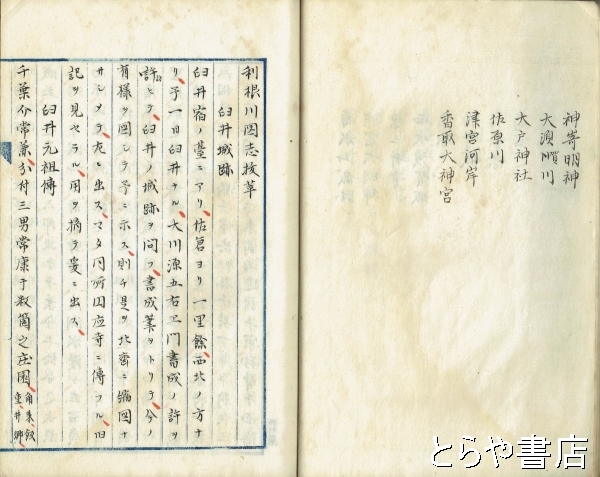 神寄明神
大須賀川
大戸神社
佐原川
津宮河岸
香取大神宮
利根川図志抜草
臼井城跡
臼井宿ノ臺ニアリ佐倉ヨリ一里餘西北ノ方ナ
リ予一日臼井ナル大川源五右エ門書成ノ許ヲ
訪ヒテ臼井ノ城跡ヲ問フ書成筆ヲトリテ今ノ
有様ヲ図シテ予ニ示ス則チ是ヲ北斎ニ縮図ナ
サシメテ左ニ出スマタ同所円応寺ニ傳フル旧
記ヲ見セラル用ヲ摘テ爰ニ出ス
臼井元祖傳
千葉介常兼分付三男常康于数箇之庄園
とらや書店